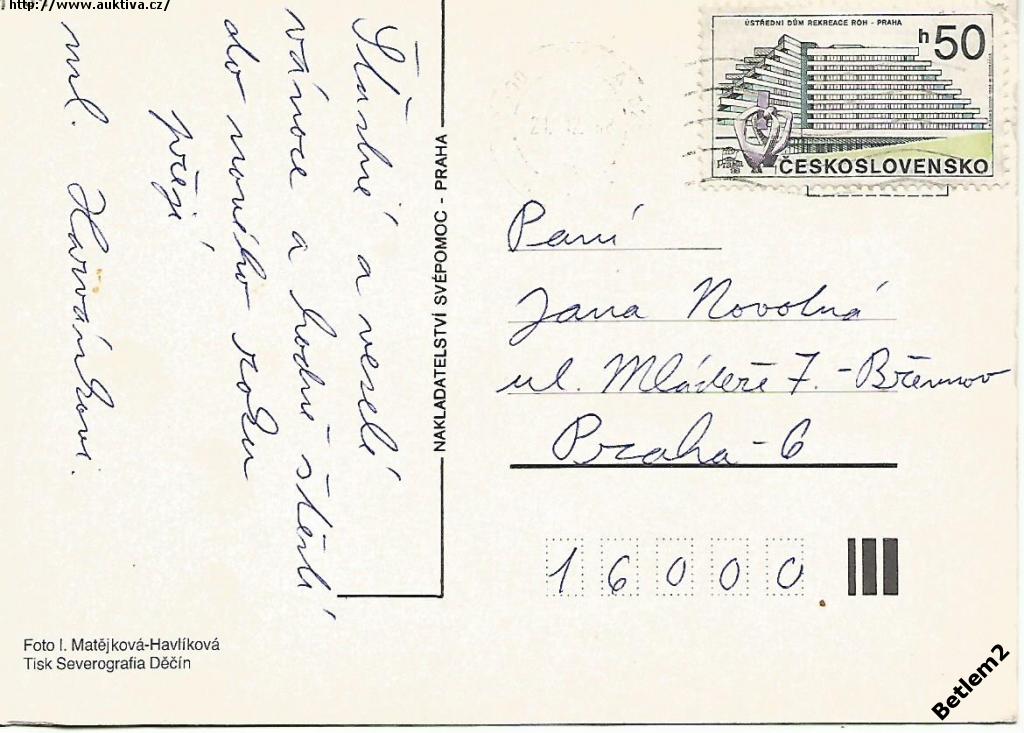 http://www.auktiva.cz/
Šťastné a veselé
vánoce a hodně štěstí
do nového roku
přejí
ml. Harvánkovi.
NAKLADATELSTVÍ SVÉPOMOC - PRAHA
ÚSTŘEDNÍ DŮM REKREACE ROH - PRAHA
h 50
Praha
ČESKOSLOVENSKO
Paní
Jana Novotná
ul. Mládeže 7. - Břevnov
Praha - 6
16000
Foto I. Matějková-Havlíková
Tisk Severografia Děčín
Betlem2